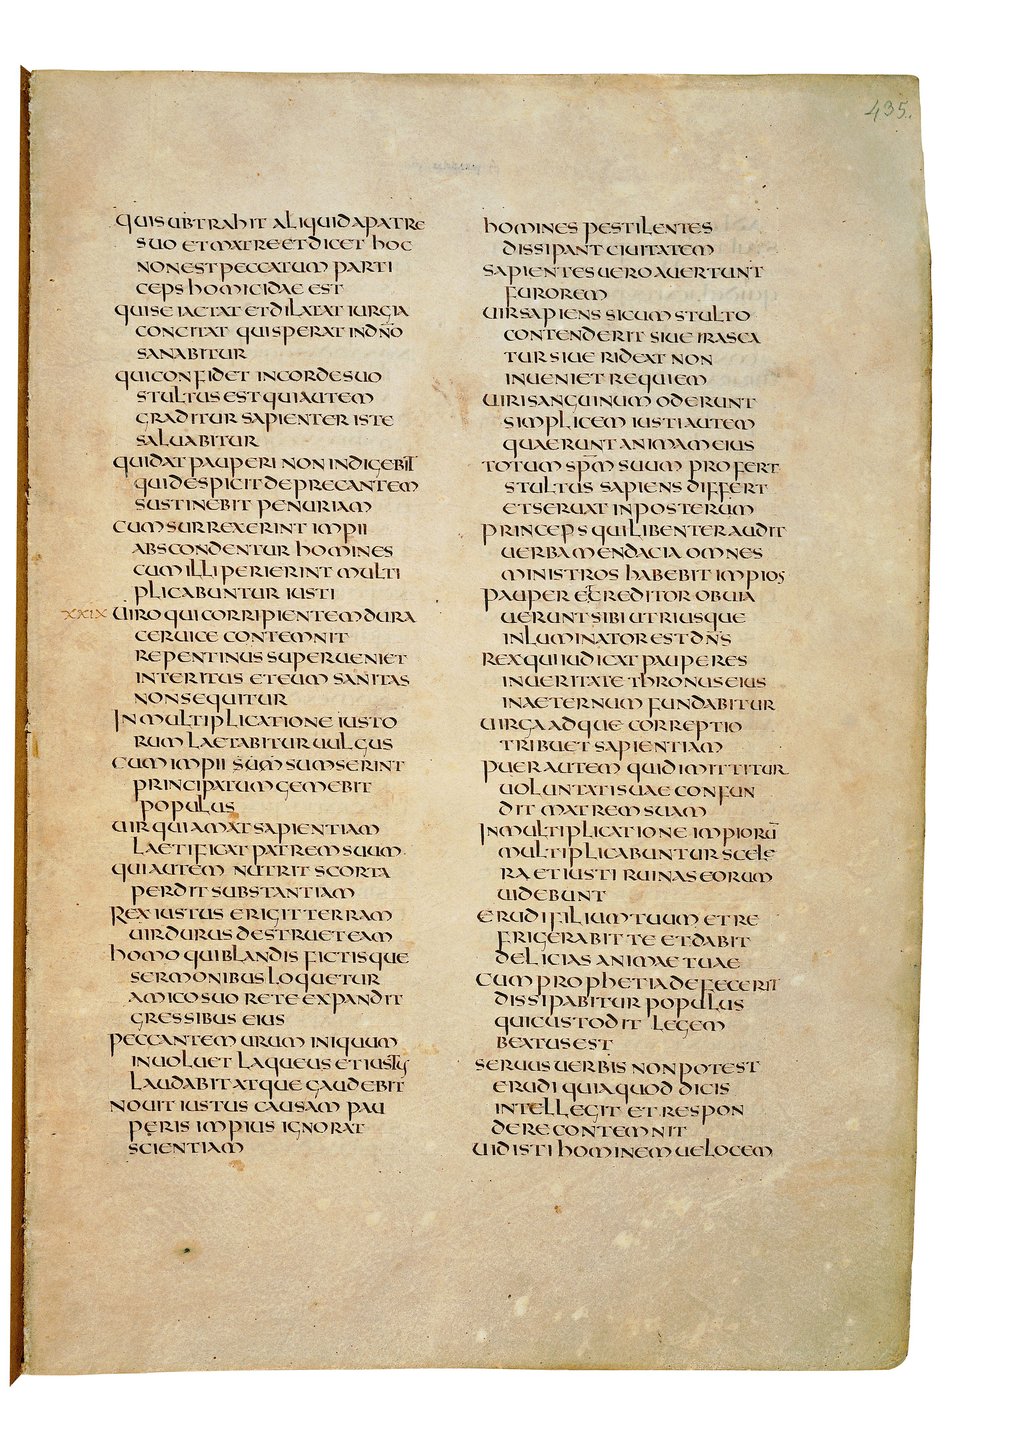 435.
QUISUBTRAHIT ALIQUIDAPATRE
SUO ETMATREETDICET HOC
NONESTPECCATUM PARTI
CEPS HOMICIDAE EST
QUISE IACTAT ETDILATAT IURGIA
CONCITAT QUISPERAT INDÑO
SANABITUR
QUICONFIDET INCORDESUO
STULTUS EST QUIAUTEM
GRADITUR SAPIENTER ISTE
SALUABITUR
QUIDAT PAUPERI NON INDIGEBIT
QUIDESPICIT DEPRECANTEM
SUSTINEBIT PENURIAM
CUM SURREXERINT IMPII
ABSCONDENTUR HOMINES
CUM ILLI PERIERINT MULTI
PLICABUNTUR IUSTI
XXIX UIRO QUI CORRIPIENTEM DURA
CERUICE CONTEMNIT
REPENTINUS SUPERUENIET
INTERITUS ETEUM SANITAS
NONSEQUITUR
INMULTIPLICATIONE IUSTO
RUM LAETABITURUULGUS
CUM IMPII SUM SUMSERINT
PRINCIPATUM GEMEBIT
POPULUS
UIR QUI AMAT SAPIENTIAM
LAETIFICAT PATREM SUUM
QUIAUTEM NUTRIT SCORTA
PERDIT SUBSTANTIAM
REX IUSTUS ERIGIT TERRAM
UIRDURUS DESTRUETEAM
HOMO QUIBLANDIS FICTISQUE
SERMONIBUS LOQUETUR
AMICOSUO RETE EXPANDIT
GRESSIBUS EIUS
PECCANTEM URUM INIQUUM
INUOLUET LAQUEUS ETIUSTUS
LAUDABIT ATQUE GAUDEBIT
NOUIT IUSTUS CAUSAM PAU
PERIS IMPIUS IGNORAT
SCIENTIAM
HOMINES PESTILENTES
DISSIPANT CIUITATEM
SAPIENTES UERO AUERTUNT
FUROREM
UIRSAPIENS SICUM STULTO
CONTENDERIT SIUE IRASCA
TUR SIUE RIDEAT NON
INUENIET REQUIEM
UIRISANGUINUM ODERUNT
SIMPLICEM IUSTIAUTEM
QUAERUNT ANIMAM EIUS
TOTUM SPM̄ SUUM PROFERT
STULTUS SAPIENS DIFFERT
ETSERUAT INPOSTERUM
PRINCEPS QUILIBENTER AUDIT
UERBA MENDACIA OMNES
MINISTROS HABEBIT IMPIOS
PAUPER ETCREDITOR OBUIA
UERUNT SIBI UTRIUSQUE
INLUMINATOR EST DÑS
REX QUI IUDICAT PAUPERES
INUERITATE THRONUS EIUS
INAETERNUM FUNDABITUR
UIRGA ADQUE CORREPTIO
TRIBUET SAPIENTIAM
PUER AUTEM QUIDIMITTITUR
UOLUNTATI SUAE CONFUN
DIT MATREM SUAM
INMULTIPLICATIONE IMPIORŪ
MULTIPLICABUNTUR SCELE
RA ET IUSTI RUINAS EORUM
UIDEBUNT
ERUDI FILIUM TUUM ET RE
FRIGERABIT TE ETDABIT
DELICIAS ANIMAE TUAE
CUM PROPHETIA DEFECERIT
DISSIPABITUR POPULUS
QUICUSTODIT LEGEM
BEATUS EST
SERUUS UERBIS NON POTEST
ERUDI QUIAQUOD DICIS
INTELLEGIT ET RESPON
DERE CONTEMNIT
UIDISTI HOMINEM UELOCEM